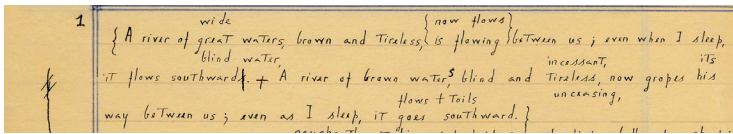 1
wide { now flows }
{ A river of great waters, brown and tireless, is flowing between us ; even when I sleep,
blind water, incessant, its
it flows southward. + A river of brown waters, blind and tireless, now gropes his
flows + toils unceasing,
way between us ; even as I sleep, it goes southward. }